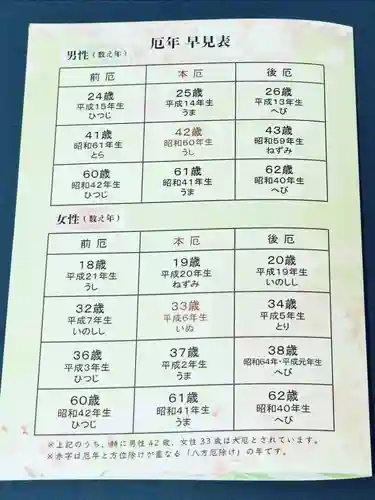 厄年 早見表
男性（数え年）
前厄 本厄 後厄
24歳 25歳 26歳
平成15年生 平成14年生 平成13年生
ひつじ うま へび
41歳 42歳 43歳
昭和61年生 昭和60年生 昭和59年生
とら うし ねずみ
60歳 61歳 62歳
昭和42年生 昭和41年生 昭和40年生
ひつじ うま へび
女性（数え年）
前厄 本厄 後厄
18歳 19歳 20歳
平成21年生 平成20年生 平成19年生
うし ねずみ いのしし
32歳 33歳 34歳
平成7年生 平成6年生 平成5年生
いのしし いぬ とり
36歳 37歳 38歳
平成3年生 平成2年生 昭和64年・平成元年生
ひつじ うま へび
60歳 61歳 62歳
昭和42年生 昭和41年生 昭和40年生
ひつじ うま へび
※上記のうち、特に男性42歳、女性33歳は大厄とされています。
※赤字は厄年と方位除けが重なる「八方厄除け」の年です。